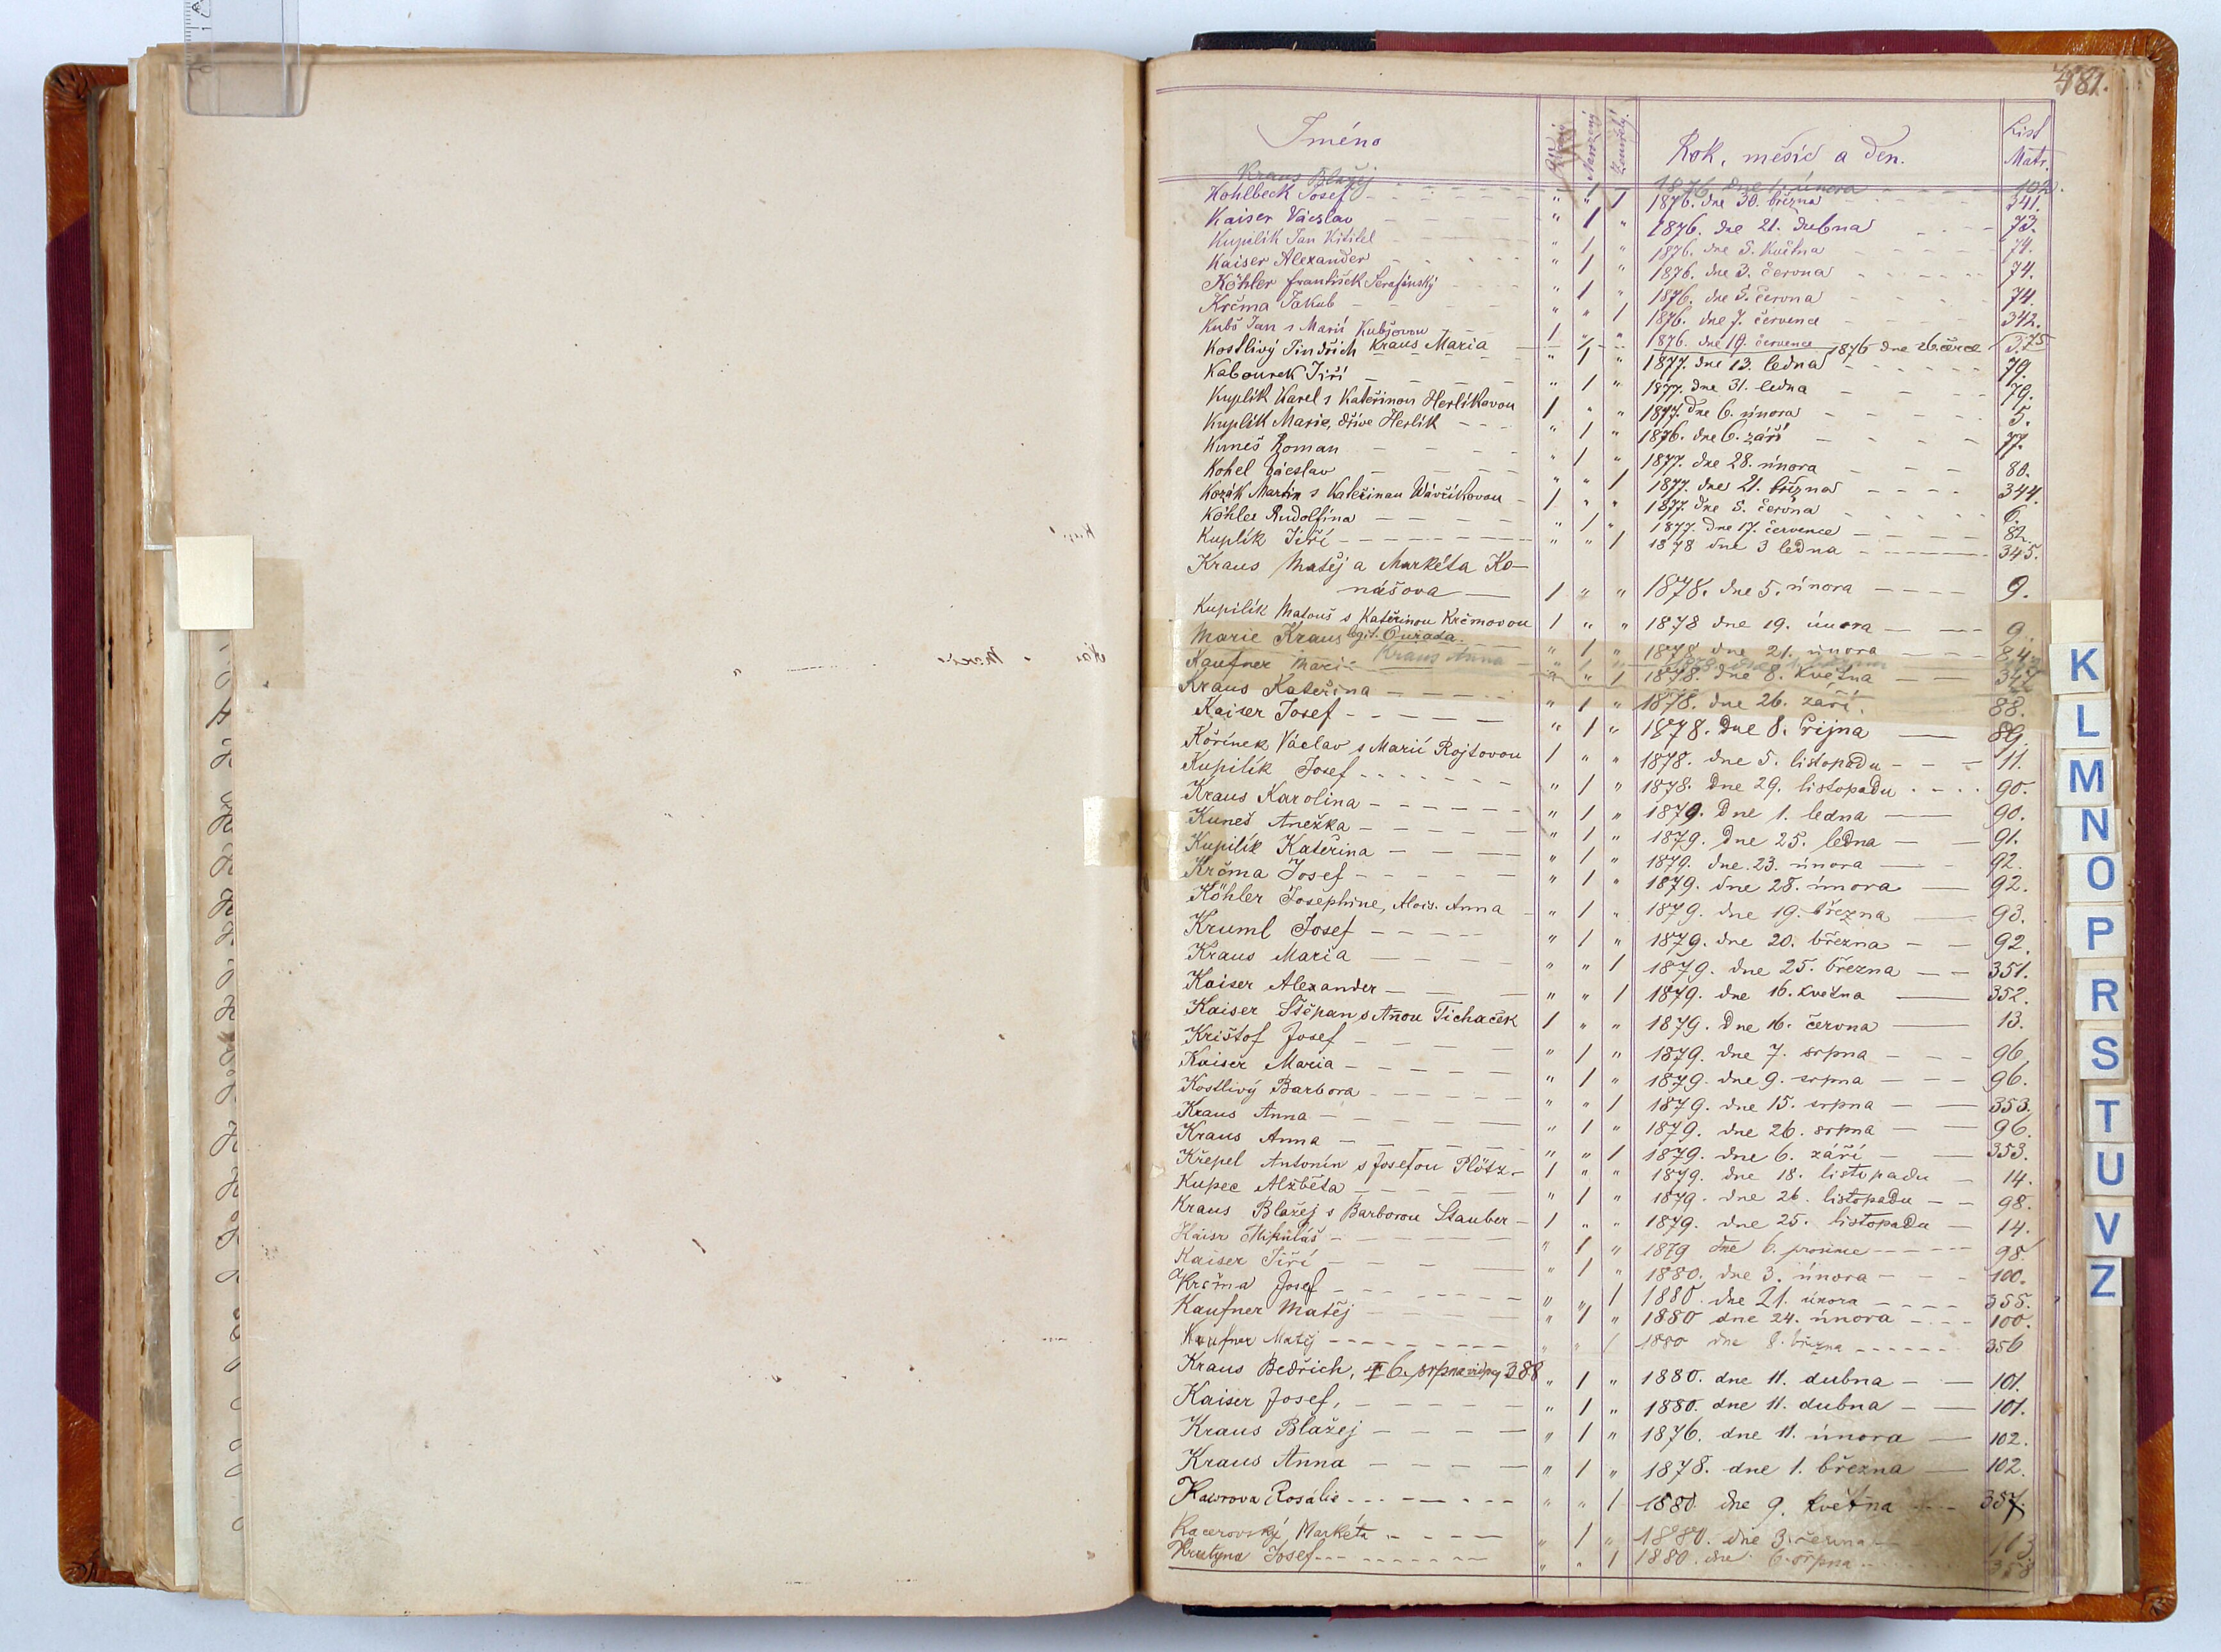 481.
Jméno Narozený Zemřelý. Rok, měsíc a den. List Matr.
Kraus Blažej - - - 1876 dne 1. února - - 102.
Hohlbeck Josef - - - " " 1 1876. dne 30. března 341.
Kaiser Václav - - - " 1 " 1876. dne 21. dubna - - - 73.
Kupilík Jan - - - " 1 " 1876. dne 5. května - - - 74.
Kaiser Alexander - - - " 1 " 1876. dne 3. června - - - 74.
Köhler František Serafínský - - - " 1 " 1876. dne 5. června - - - 74.
Krčma Jakub - - - " " 1 1876. dne 7. července - - - 342.
Kubš Jan s Marií Kubšovou - - 1 " " 1876. dne 19. července 3.
Kraus Maria 1876 dne 26. 75
Kostlivý Jindřich " 1 " 1877. dne 13. ledna - - - 79.
Kabourek Jiří - - - " 1 " 1877. dne 31. ledna - - - 79.
Kuplík Karel s Kateřinou Herlíkovou 1 " " 1877. dne 6. února - - - 5.
Kuplík Marie, dříve Herlík - - - " 1 " 1876. dne 6. září - - - 77.
Kuneš Roman - - - " 1 " 1877. dne 28. února - - - 80.
Kohel Václav - - - " " 1 1877. dne 21. března - - - 344.
Kozák Martin s Kateřinau Vávříkovou - 1 " " 1877. dne 5. června - - - 6.
Köhler Rudolfína - - - " 1 " 1877. dne 17. července - - - 82.
Kuplík Jiří - - - " " 1 1878 dne 3 ledna - - - 345.
Kraus Matěj a Markéta Ko-
nášova — 1 " " 1878. dne 5. února - - - 9.
Kupilík Matouš s Kateřinou Krčmovou 1 " " 1878 dne 19. února — - - 9.
Marie Kraus legit. Ouřada. " 1 " 1878 dne 21. února — - - 84.
Kraus Anna
Kaufner Marie " " 1 1878. dne 8. května — — 347
Kraus Kateřina - - - " 1 " 1878. dne 26. září. 88.
Kaiser Josef - - - " 1 " 1878. dne 8. října — 89.
Kořínek Václav s Marií Rojtovou 1 " " 1878. dne 5. listopadu - - - 11.
Kupilík Josef - - - " 1 " 1878. dne 29. listopadu - - - 90.
Kraus Karolina - - - " 1 " 1879. dne 1. ledna — 90.
Kuneš Anežka - - - " 1 " 1879. dne 25. ledna — 91.
Kupilík Kateřina - - - " 1 " 1879. dne 23. února — 92.
Krčma Josef - - - " 1 " 1879. dne 28. února — 92.
Köhler Josephine, Alois. Anna - " 1 " 1879. dne 19. března — 93.
Kruml Josef - - - " 1 " 1879. dne 20. března — 92.
Kraus Maria - - - " " 1 1879. dne 25. března — 351.
Kaiser Alexander - - - " " 1 1879. dne 16. května — 352.
Kaiser Štěpan s Annou Tichaček 1 " " 1879. dne 16. června — 13.
Krištof Josef - - - " 1 " 1879. dne 7. srpna - - - 96.
Kaiser Maria - - - " 1 " 1879. dne 9. srpna - - - 96.
Kostlivý Barbora - - - " " 1 1879. dne 15. srpna — 353.
Kraus Anna - - - " 1 " 1879. dne 26. srpna — 96.
Kraus Anna - - - " " 1 1879. dne 6. září — 353.
Křepel Antonín s Josefou Plötz - 1 " " 1879. dne 18. listopadu — 14.
Kupec Alžběta - - - " 1 " 1879. dne 26. listopadu — 98.
Kraus Blažej s Barborou Stauber - 1 " " 1879. dne 25. listopadu — 14.
Kaisr Mikuláš - - - " 1 " 1879 dne 6. prosince - - - 98.
Kaiser Jiří - - - " 1 " 1880. dne 3. února - - - 100.
Krčma Josef - - - " " 1 1880. dne 21. února - - - 355.
Kaufner Matěj - - - " 1 " 1880 dne 24. února - - - 100.
Kaufner Matěj - - - " " 1 1880 dne 8. března - - - 356
Kraus Bedřich, † 6. srpna 388 " 1 " 1880. dne 11. dubna — 101.
Kaiser Josef, - - - " 1 " 1880. dne 11. dubna — 101.
Kraus Blažej - - - " 1 " 1876. dne 11. února — 102.
Kraus Anna - - - " 1 " 1878. dne 1. března — 102.
Rosálie - - - " " 1 1880. dne 9. května - - 357.
Kacerovský, Markéta - - - " 1 " 1880. dne 3. června 103
Krutyna Josef - - - " " 1 1880. dne 6. srpna 358
K
L
M
N
O
P
R
S
T
U
V
Z